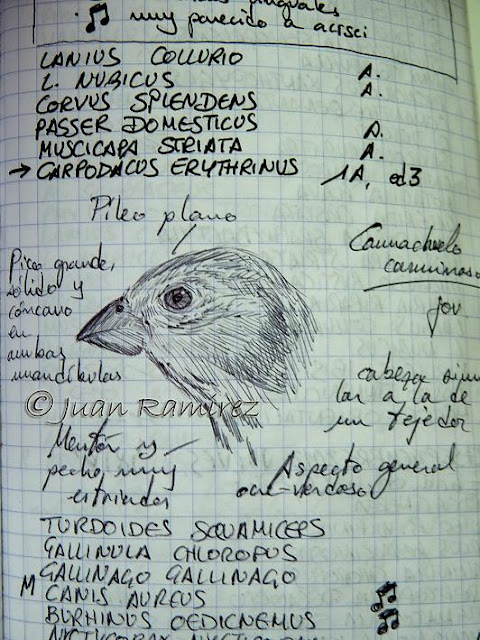 linguales
muy parecido a acrsci
LANIUS COLLURIO A.
L. NUBICUS A.
CORVUS SPLENDENS
PASSER DOMESTICUS A.
MUSCICAPA STRIATA A.
→ CARPODACUS ERYTHRINUS 1A, ad3
Píleo plano
Camachuelo
carminoso
jov
Pico grande,
sólido y
cóncavo
en
ambas
mandíbulas
cabeza simi
lar a la de
un tejedor
© Juan Ramírez
Mentón y
pecho muy
estriados
Aspecto general
ocre-verdoso
TURDOIDES SQUAMICEPS
GALLINULA CHLOROPUS
GALLINAGO GALLINAGO
M CANIS AUREUS
BURHINUS OEDICNEMUS
NYCTICORAX NYCTICORAX